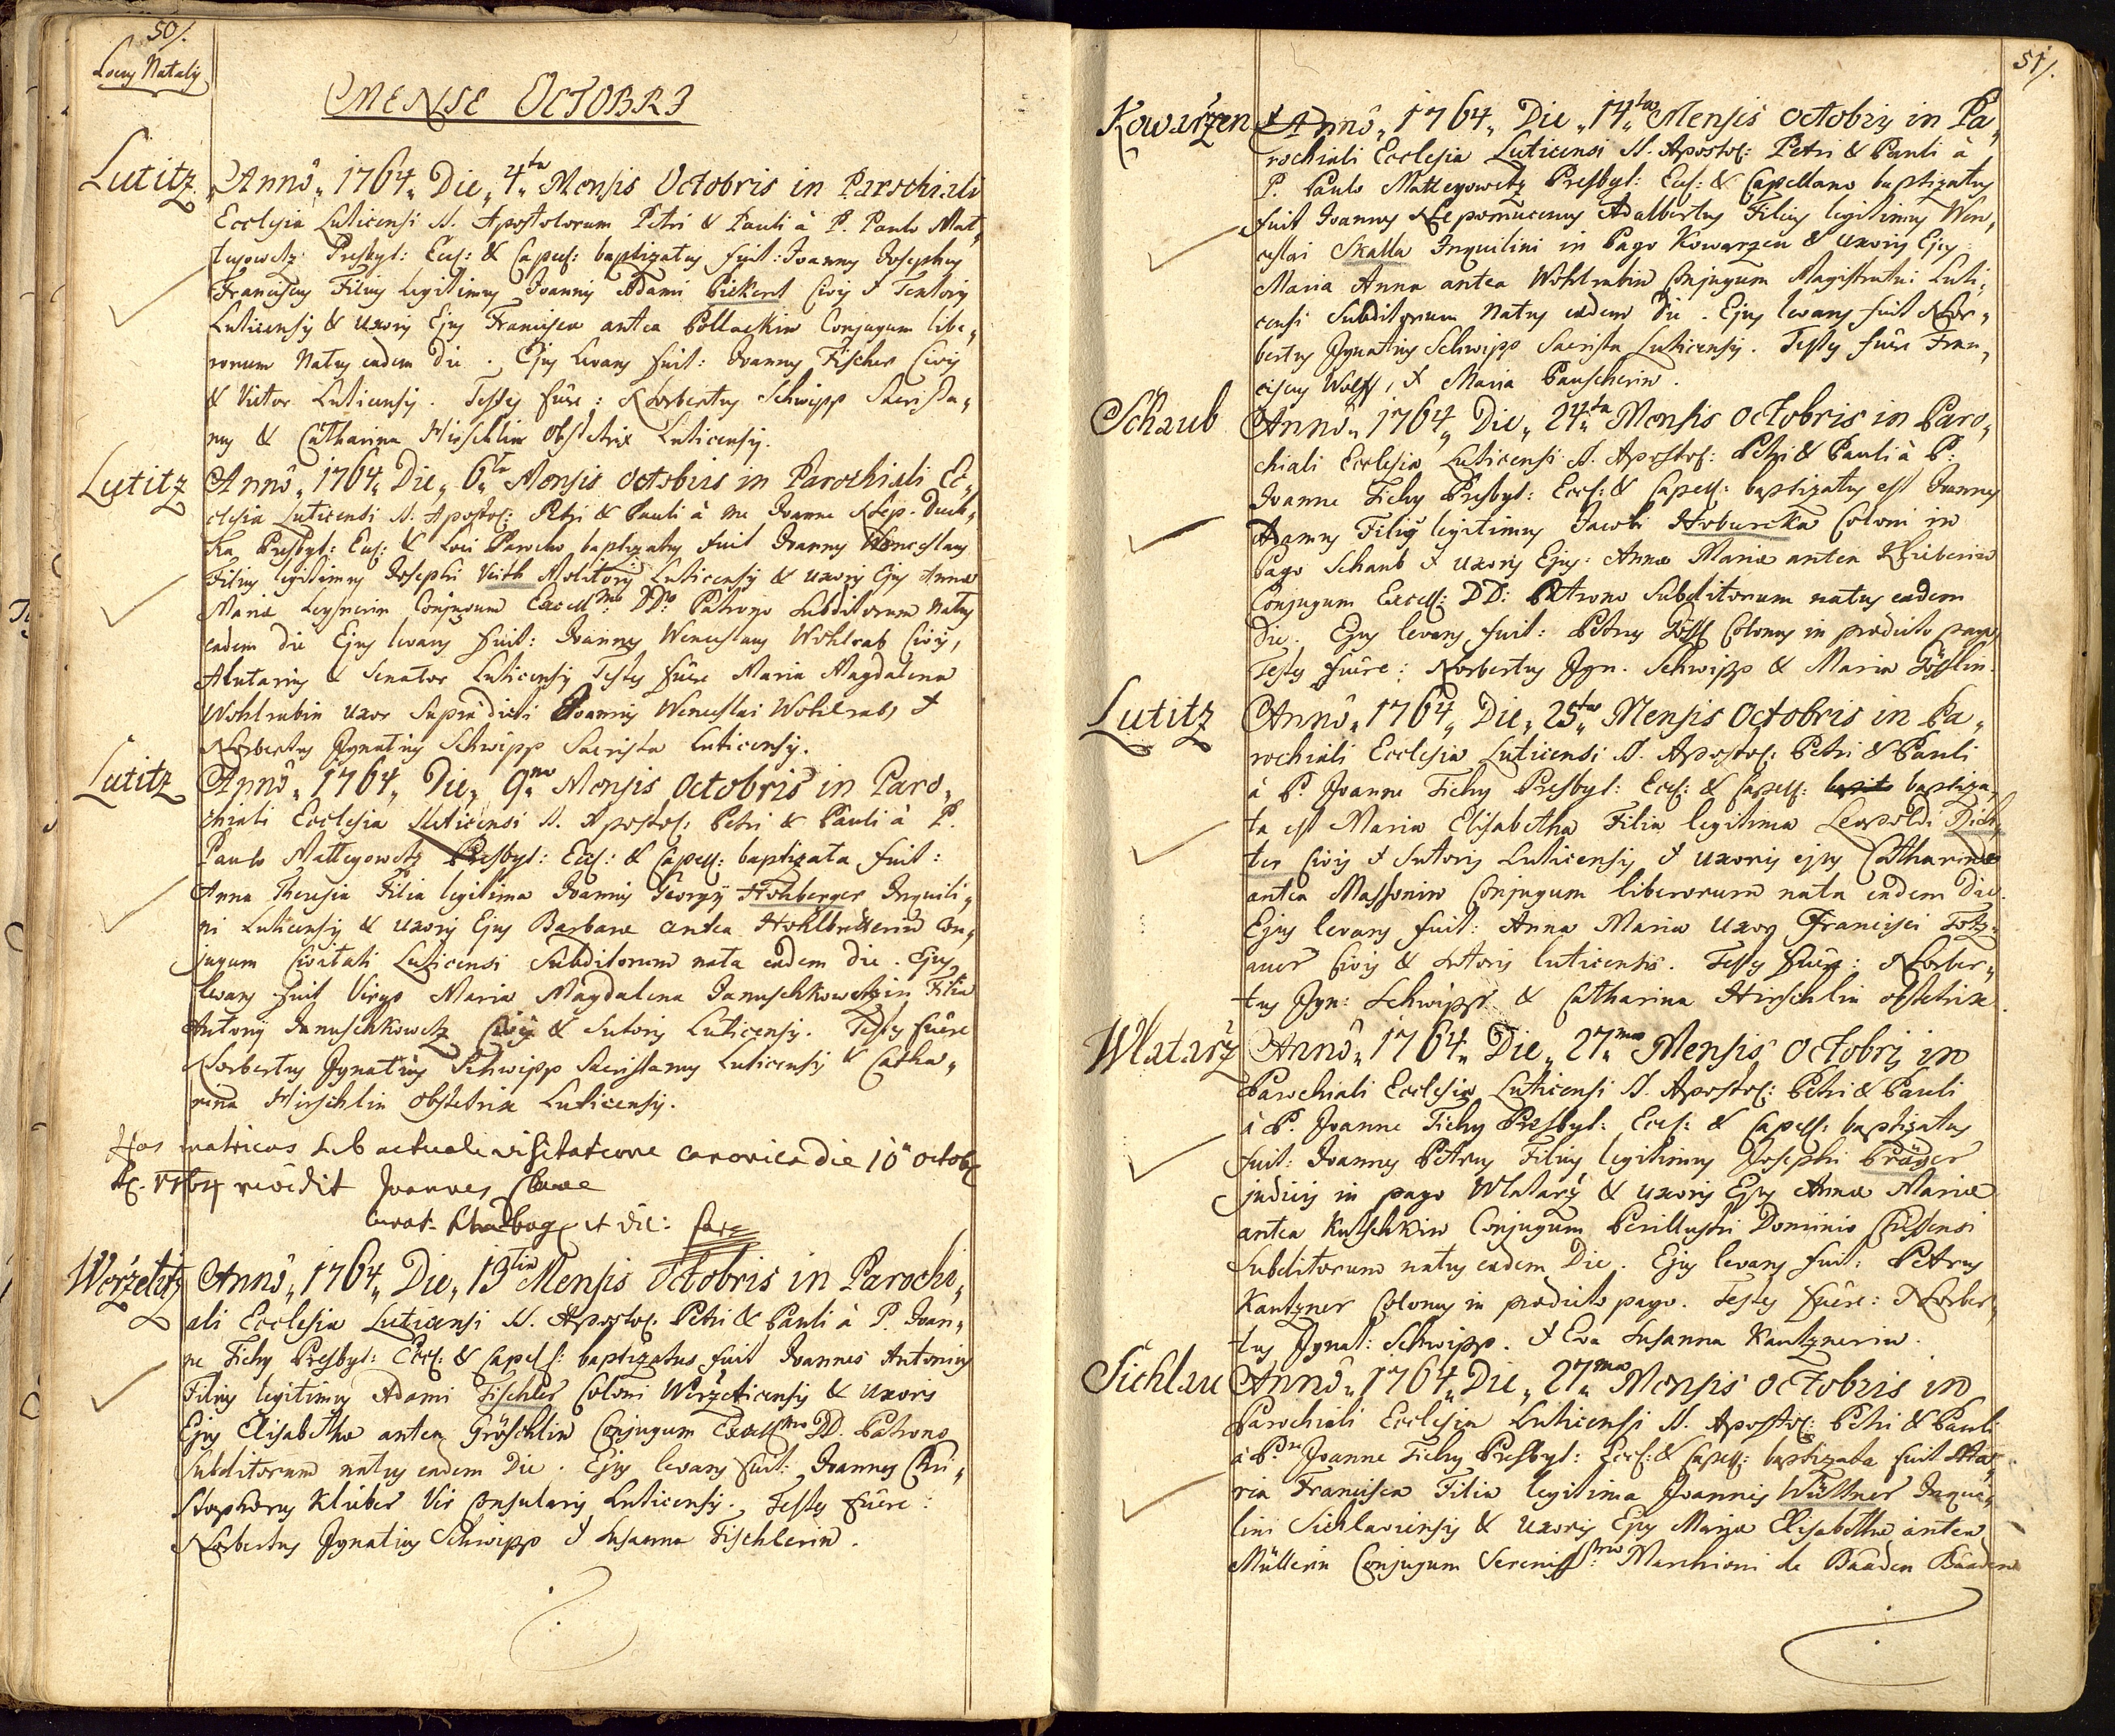 50/.
Locus Natalis
MENSE OCTOBRI
Lutitz
Annô„ 1764„ Die„ 4ta„ Mensis Octobris in Parochiali
Ecclesia Luticensi SS. Apostolorum Petri & Pauli à P. Paulo Mat„
teyowetz Presbyt: Ecc: & Capell: baptizatus fuit: Joannes Josephus
Franciscus Filius legitimus Joannis Adami Pickert Civis & Textoris
Luticensis & Uxoris Ejus Francisca antea Pollackin Conjugum libe„
rorum Natus eadem die. Ejus Levans fuit: Joannes Fischer Civis
& Vietor Luticensis. Testes fuêre: Norbertus Schwipp Sacrista„
nus & Catharina Hirschlin Obstetrix Luticensis.
Lutitz
Annô„ 1764„ Die„ 6ta„ Mensis Octobris in Parochiali Ec„
clesia Luticensi SS. Apostol: Petri & Pauli à me Joanne Nep. Duch„
ka Presbyt: Ecc: & Loci Parocho baptizatus fuit Joannes Wenceslaus
Filius legitimus Josephi Veith Molitoris Luticensis & uxoris Ejus Annæ
Mariæ Conjugum Excellmo DD: Patrono Subditorum Natus
eadem die Ejus levans fuit: Joannes Wenceslaus Wohlrab Civis,
Alutarius & Senator Luticensis Testes fuêre Maria Magdalena
Wohlrabin uxor Supradicti Joannis Wenceslai Wohlrab, &
Norbertus Ignatius Schwipp Sacrista Luticensis.
Lutitz
Annô„ 1764„ Die„ 9na„ Mensis Octobris in Paro„
chiali Ecclesia Luticensi SS. Apostol: Petri & Pauli à P.
Paulo Matteyowetz Presbyt: Ecc: & Capell: baptizata fuit:
Anna Theresia Filia legitima Joannis Georgy Hohberger Inquili„
ni Luticensis & uxoris Ejus Barbara antea Con„
jugum Civitati Luticensi Subditorum nata eadem die. Ejus
levans fuit Virgo Maria Magdalena Januschkowetzin Filia
Antony Januschkowetz Civis & Sutoris Luticensis. Testes fuêre
Norbertus Ignatius Schwipp Sacristanus Luticensis & Catha„
rina Hirschlin Obstetrix Luticensis.
Has matricas sub actuali visitatione canonica die 10a octobr
1764 revidit Joannes
&
Werzetitz
Annô„ 1764„ Die„ 13tia Mensis Octobris in Parochi„
ali Ecclesia Luticensi SS. Apostol: Petri & Pauli à P. Joan„
ne Tichy Presbyt: Eccl: & Capell: baptizatus fuit Joannes Antonius
Filius legitimus Adami Fischler Coloni Werzeticensis & Uxoris
Ejus Elisabetha antea Gröschlin Conjugum Excellmo DD. Patrono
Subditorum natus eadem Die. Ejus levans fuit: Joannes Chri„
stophorus Klüber Vir Consularis Luticensis. Testes fuêre:
Norbertus Ignatius Schwipp & Susanna Fischlerin.
51/.
Kowarzen
Annô„ 1764„ Die„ 14ta„ Mensis Octobris in Pa„
rochiali Ecclesia Luticensi SS. Apostol: Petri & Pauli à
P. Paulo Matteyowetz Presbyt: Ecc: & Capellano baptizatus
fuit Joannes Nepomucenus Adalbertus Filius legitimus Wen„
ceslai Skalla Inquilini in Pago Kowarzen & uxoris Ejus
Maria Anna antea Wohlrabin Conjugum Magistratui Luti„
censi Subditorum Natus eadem Die. Ejus levans fuit Nor„
bertus Ignatius Schwipp Sacrista Luticensis. Testes fuêre Fran„
ciscus Wolff, & Maria Pauscherin.
Schaub
Annô„ 1764„ Die„ 24ta„ Mensis Octobris in Paro„
chiali Ecclesia Luticensi SS. Apostol: Petri & Pauli à P.
Joanne Tichy Presbyt: Eccl: & Capell: baptizatus est Joannes
Adamus Filius legitimus Jacobi Coloni in
Pago Schaub & uxoris Ejus Annæ Mariæ antea
Conjugum Excell: DD: Patrono Subditorum natus eadem
Die. Ejus levans fuit: Petrus Jöstl Colonus in prædicto pago
Testes fuêre: Norbertus Ign. Schwipp & Maria Jöstlin.
Lutitz
Annô„ 1764„ Die„ 25ta„ Mensis Octobris in Pa„
rochiali Ecclesia Luticensi SS. Apostol: Petri & Pauli
à P. Joanne Tichy Presbyt: Eccl: & Capell: baptiza„
ta est Maria Elisabetha Filia legitima Leopoldi Dich„
ter Civis & Sutoris Luticensis & uxoris ejus Catharinæ
antea Massonin Conjugum liberorum nata eadem Die.
Ejus levans fuit: Anna Maria Uxor Francisci Totz„
auer Civis & Sutoris luticensis. Testes fuêre: Norber„
tus Ign: Schwipp & Catharina Hirschlin obstetrix
Wlatarz
Annô„ 1764„ Die„ 27ma Mensis Octobris in
Parochiali Ecclesia Luticensi SS. Apostol: Petri & Pauli
à P. Joanne Tichy Presbyt: Eccl: & Capell: baptizatus
fuit: Joannes Petrus Filius legitimus Josephi Präger
judicis in pago Wlatarz & uxoris Ejus Annæ Mariæ
antea Kutschkin Conjugum Perillustri Dominio Chiessensi
Subditorum natus eadem Die. Ejus levans fuit: Petrus
Kantzner Colonus in prædicto pago. Testes fuêre: Norber„
tus Ignat: Schwipp. & Eva Susanna Kantznerin.
Sichlau
Annô„ 1764„ Die„ 27ma„ Mensis Octobris in
Parochiali Ecclesia Luticensi SS. Apostol: Petri & Pauli
à P. Joanne Tichy Presbyt: Eccl: & Capell: baptizata fuit Ma„
ria Francisca Filia legitima Joannis Wüttner Inqui„
lini Sichlaviensis & Uxoris Ejus Mariæ Elisabethæ antea
Müllerin Conjugum Serenissmo Marchioni de Baaden Baaden